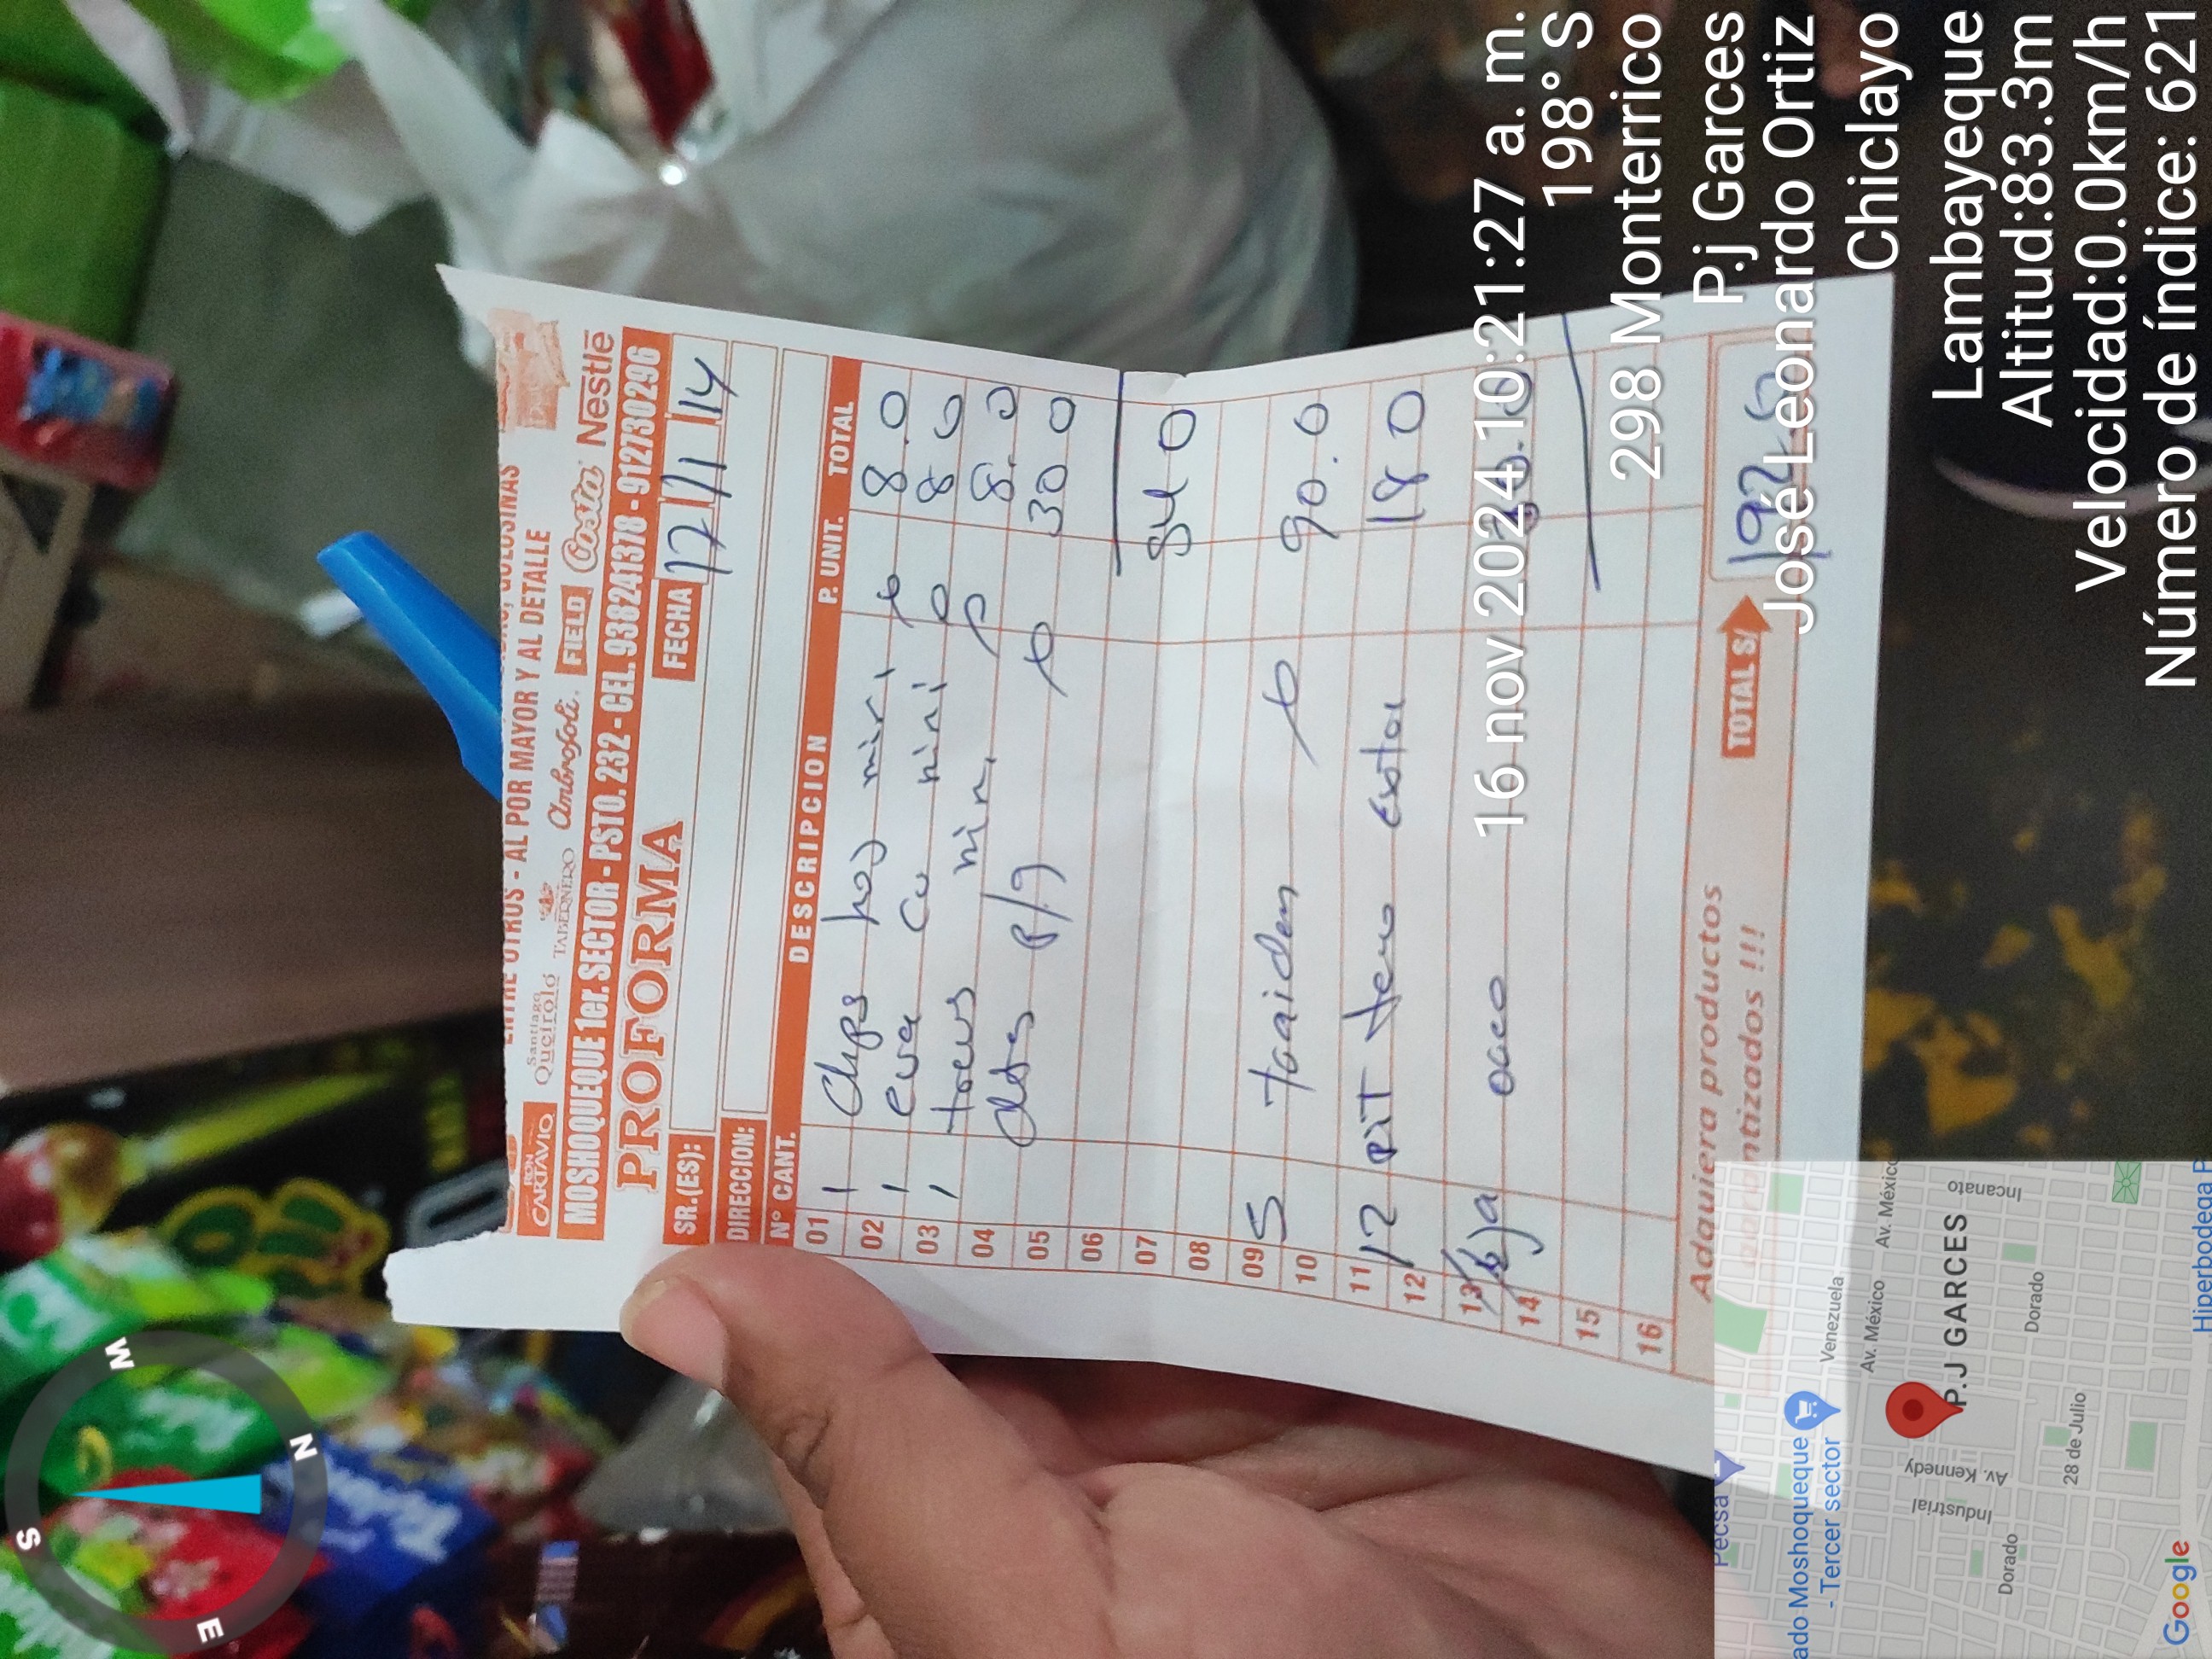 S
W
E
N
ENTRE OTROS - AL POR MAYOR Y AL DETALLE
GOLOSINAS
RON CARTAVIO Santiago Queirolo TABERNERO Ambrosoli. FIELD Costa Nestlé
MOSHOQUEQUE 1er. SECTOR - PSTO. 232 - CEL. 938241378 - 912730296
PROFORMA
FECHA 17 11 14
SR.(ES):
DIRECCION:
N° CANT. DESCRIPCION P. UNIT. TOTAL
01 1 Chps mini 8.0
02 1 mini 8 0
03 1 8. 0
04 p/g 30 0
05
06
07 54 0
08
09 5 90.0
10
11 12 PIT 18 0
12
13 30.0
14
15
16
Adquiera productos
garantizados !!!
TOTAL S/ 192.0
16 nov 2024 10:21:27 a. m.
198° S
298 Monterrico
P.j Garces
José Leonardo Ortiz
Chiclayo
Lambayeque
Altitud:83.3m
Velocidad:0.0km/h
Número de índice: 621
Pecsa
ado Moshoqueque
- Tercer sector
Venezuela
Av. México
Av. México
Industrial
Av. Kennedy
P.J GARCES
Incanato
Dorado
Dorado
28 de Julio
Google
Hiperbodega P